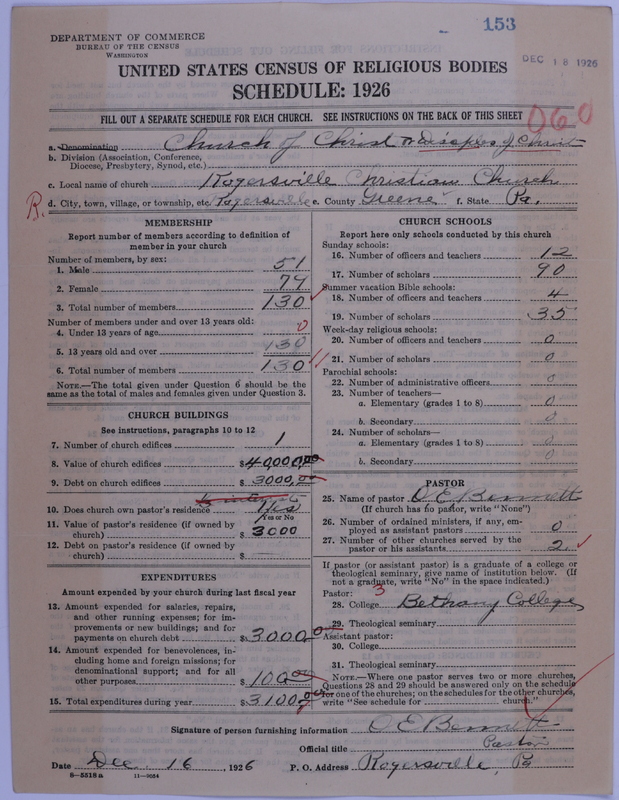 153
DEPARTMENT OF COMMERCE
BUREAU OF THE CENSUS
WASHINGTON
DEC 18 1926
UNITED STATES CENSUS OF RELIGIOUS BODIES
SCHEDULE: 1926
FILL OUT A SEPARATE SCHEDULE FOR EACH CHURCH. SEE INSTRUCTIONS ON THE BACK OF THIS SHEET
060
a. Denomination Church of Christ or Disciples of Christ
b. Division (Association, Conference, Diocese, Presbytery, Synod, etc.)
c. Local name of church Rogersville Christian Church
R. d. City, town, village, or township, etc. Rogersville e. County Greene f. State Pa.
MEMBERSHIP
Report number of members according to definition of
member in your church
Number of members, by sex:
1. Male 51
2. Female 79
3. Total number of members 130
Number of members under and over 13 years old:
4. Under 13 years of age 0
5. 13 years old and over 130
6. Total number of members 130
NOTE.—The total given under Question 6 should be
same as the total of males and females given under Question 3.
CHURCH BUILDINGS
See instructions, paragraphs 10 to 12
7. Number of church edifices 1
8. Value of church edifices $40,000.00
9. Debt on church edifices $3000.00
10. Does church own pastor's residence Yes
Yes or No
11. Value of pastor's residence (if owned by
church) $3000
12. Debt on pastor's residence (if owned by
church) $ —
EXPENDITURES
Amount expended by your church during last fiscal year
13. Amount expended for salaries, repairs,
and other running expenses; for im-
provements or new buildings; and for
payments on church debt $3000.00
14. Amount expended for benevolences, in-
cluding home and foreign missions; for
denominational support; and for all
other purposes $100.00
15. Total expenditures during year $3100.00
CHURCH SCHOOLS
Report here only schools conducted by this church
Sunday schools:
16. Number of officers and teachers 12
17. Number of scholars 90
Summer vacation Bible schools:
18. Number of officers and teachers 4
19. Number of scholars 35
Week-day religious schools:
20. Number of officers and teachers 0
21. Number of scholars 0
Parochial schools:
22. Number of administrative officers 0
23. Number of teachers—
a. Elementary (grades 1 to 8) 0
b. Secondary 0
24. Number of scholars—
a. Elementary (grades 1 to 8) 0
b. Secondary 0
PASTOR
25. Name of pastor O E Bennett
(If church has no pastor, write "None")
26. Number of ordained ministers, if any, em-
ployed as assistant pastors 0
27. Number of other churches served by the
pastor or his assistants 2
If pastor (or assistant pastor) is a graduate of a college or
theological seminary, give name of institution below. (If
not a graduate, write "No" in the space indicated.)
Pastor: 3
28. College Bethany College
29. Theological seminary
Assistant pastor:
30. College
31. Theological seminary
NOTE.—Where one pastor serves two or more churches,
Questions 28 and 29 should be answered only on the schedule
for one of the churches; on the schedules for the other churches,
write "See schedule for church."
Signature of person furnishing information O E Bennett
Official title Pastor
Date Dec 16, 1926 P. O. Address Rogersville, Pa
8—5518 a 11—9054